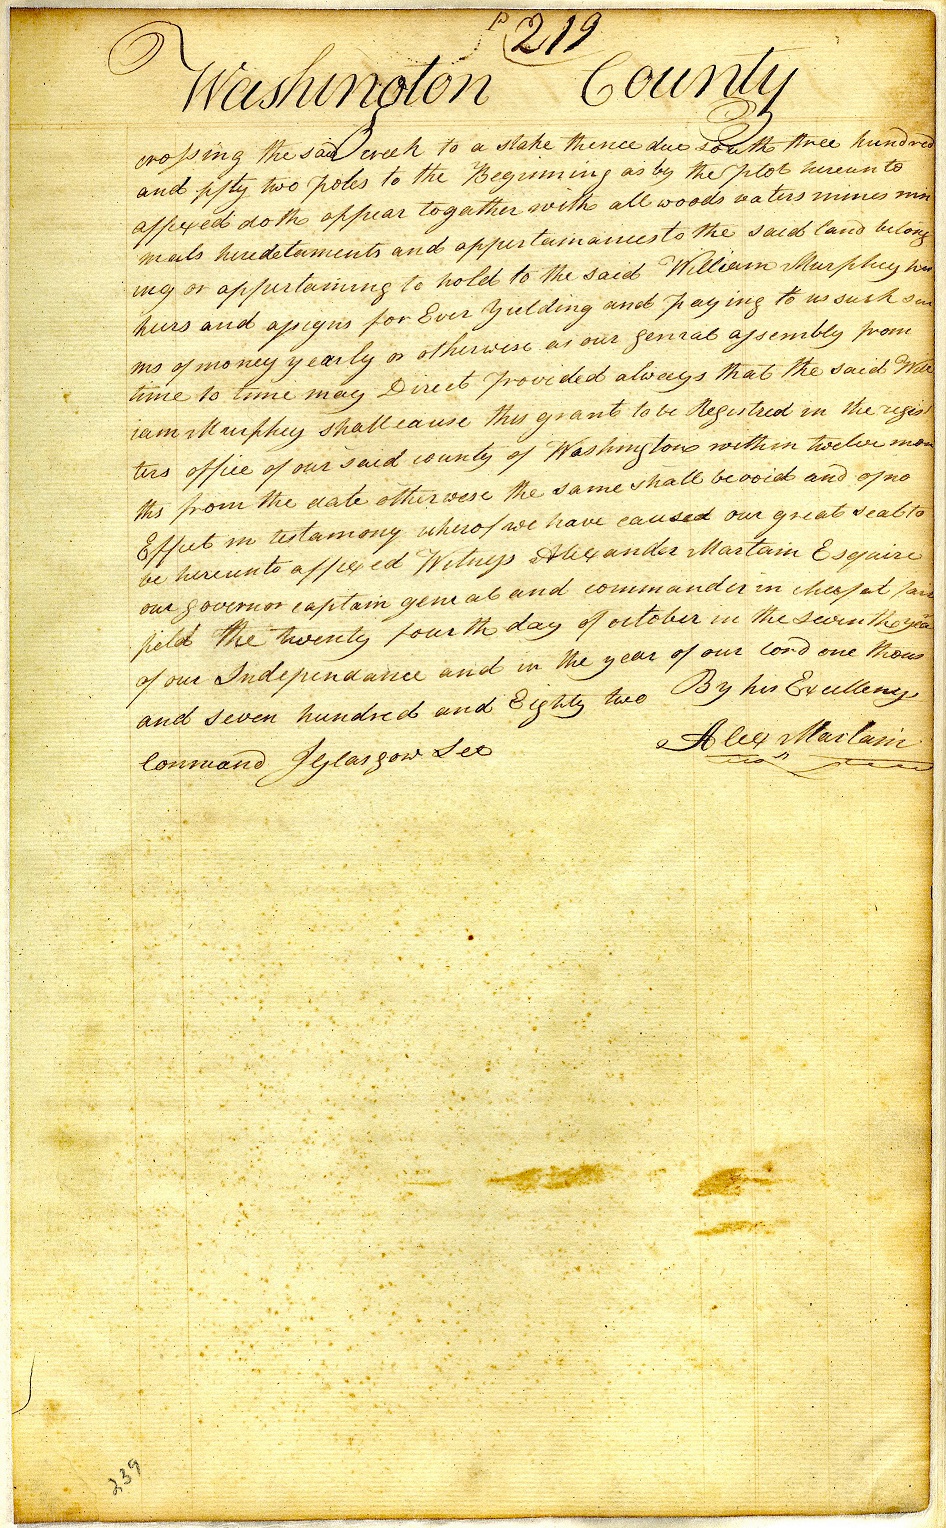 P 219
Washington County
crossing the said creek to a stake thence due south three hundred
and fifty two poles to the Beginning as by the plot hereunto
affixed doth appear together with all woods waters mines min
erals heredetaments and appertainances to the said land belong
ing or appertaining to hold to the said William Murphey his
heirs and assigns for Ever Yielding and paying to us such su
ms of money yearly or otherwise as our genral assembly from
time to time may Direct provided always that the said Will
iam Murphey shall cause this grant to be Registred in the regis
ters office of our said county of Washington within twelve mon
ths from the date otherwise the same shall be void and of no
Effect in testamony wherof we have caused our great seal to
be hereunto affixed Witness Alexander Martain Esquire
our governor captain genral and commander in cheif at fair
field the twenty fourth day of october in the seventh year
of our Independance and in the year of our lord one thous
and seven hundred and Eighty two By his Excellency
command J Glasgow Sec Alex Martain
239